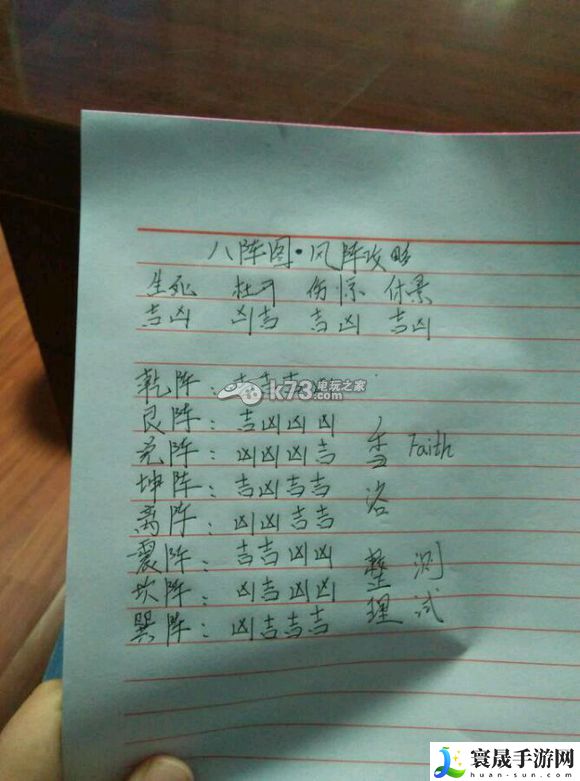 八阵图·风阵攻略
生死 杜开 伤惊 休景
吉凶 凶吉 吉凶 吉凶
乾阵：吉吉吉
k73 电玩之家
k73.com
艮阵：吉凶凶凶
兑阵：凶凶凶吉
坤阵：吉凶吉吉
离阵：凶凶吉吉
震阵：吉吉凶凶
坎阵：凶吉凶凶
巽阵：凶吉吉吉
Faith
洛
整理
测试
寰晟手游网
huan-sun.com